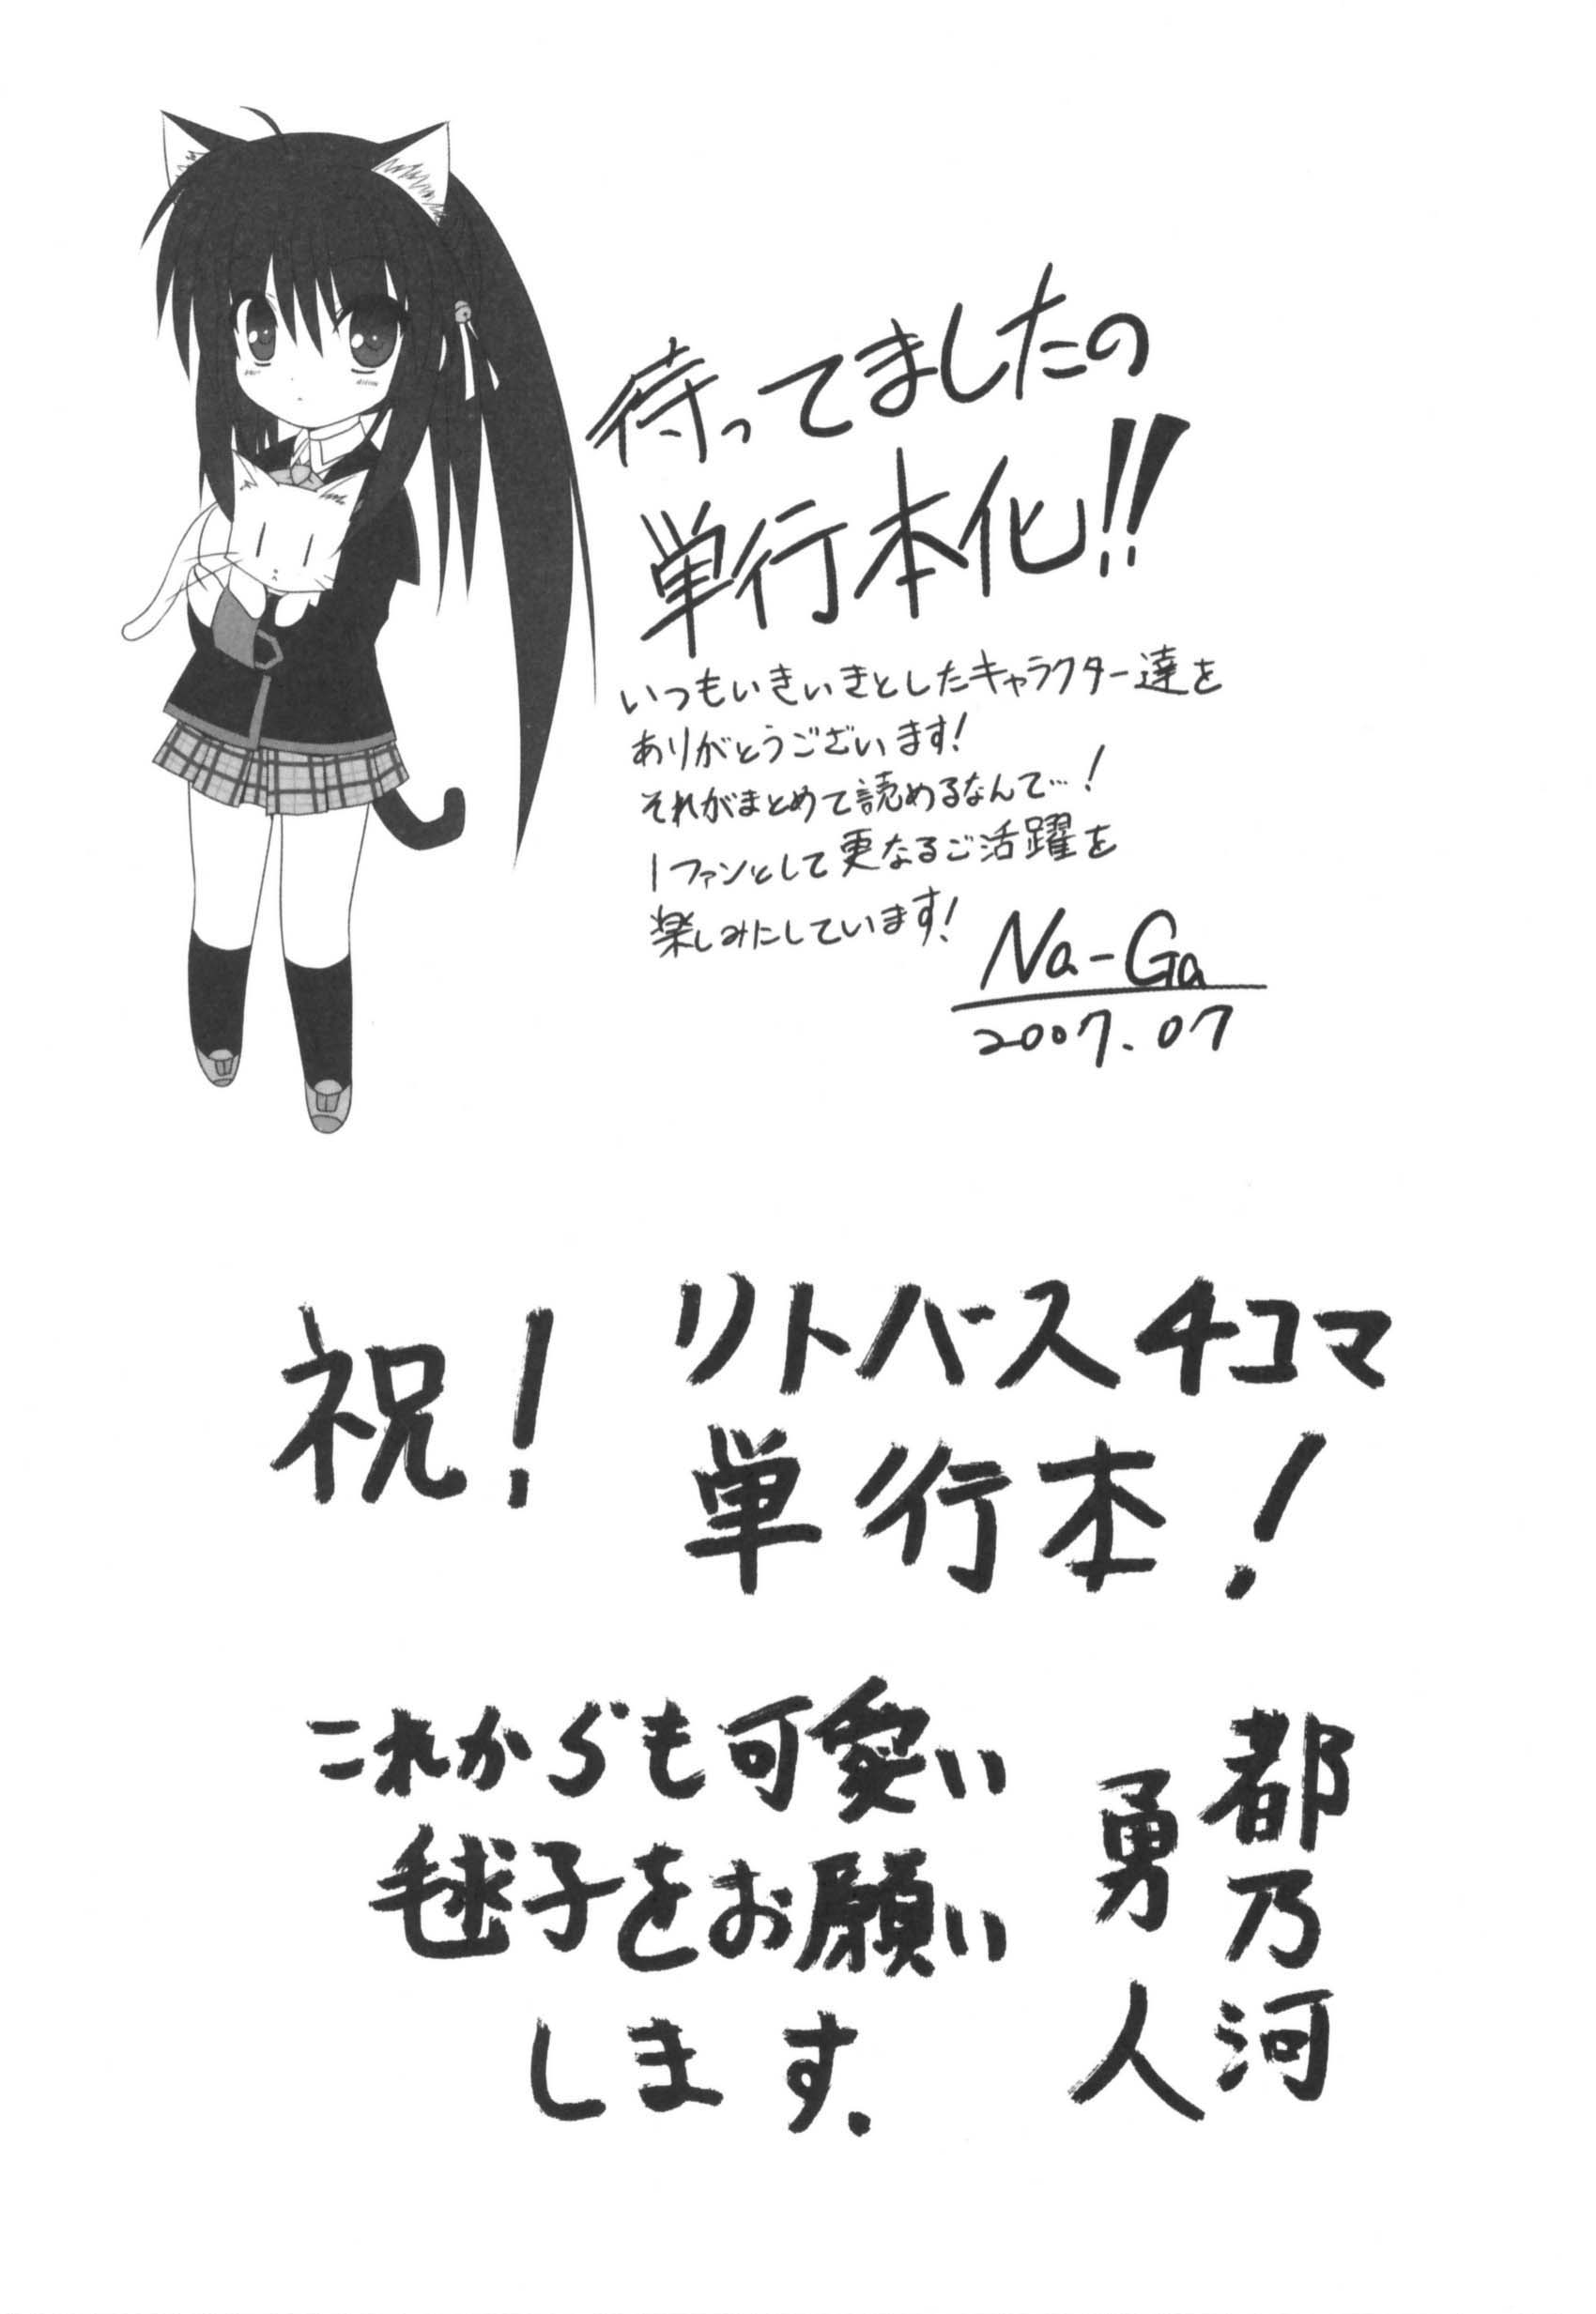 待ってましたの
単行本化!!
いつもいきいきとしたキャラクター達を
ありがとうございます!
それがまとめて読めるなんて…!
1ファンとして更なるご活躍を
楽しみにしています!
Na-Ga
2007.07
祝!
リトバス4コマ
単行本!
これからも可愛い
毬子をお願い
します.
都乃河
勇人